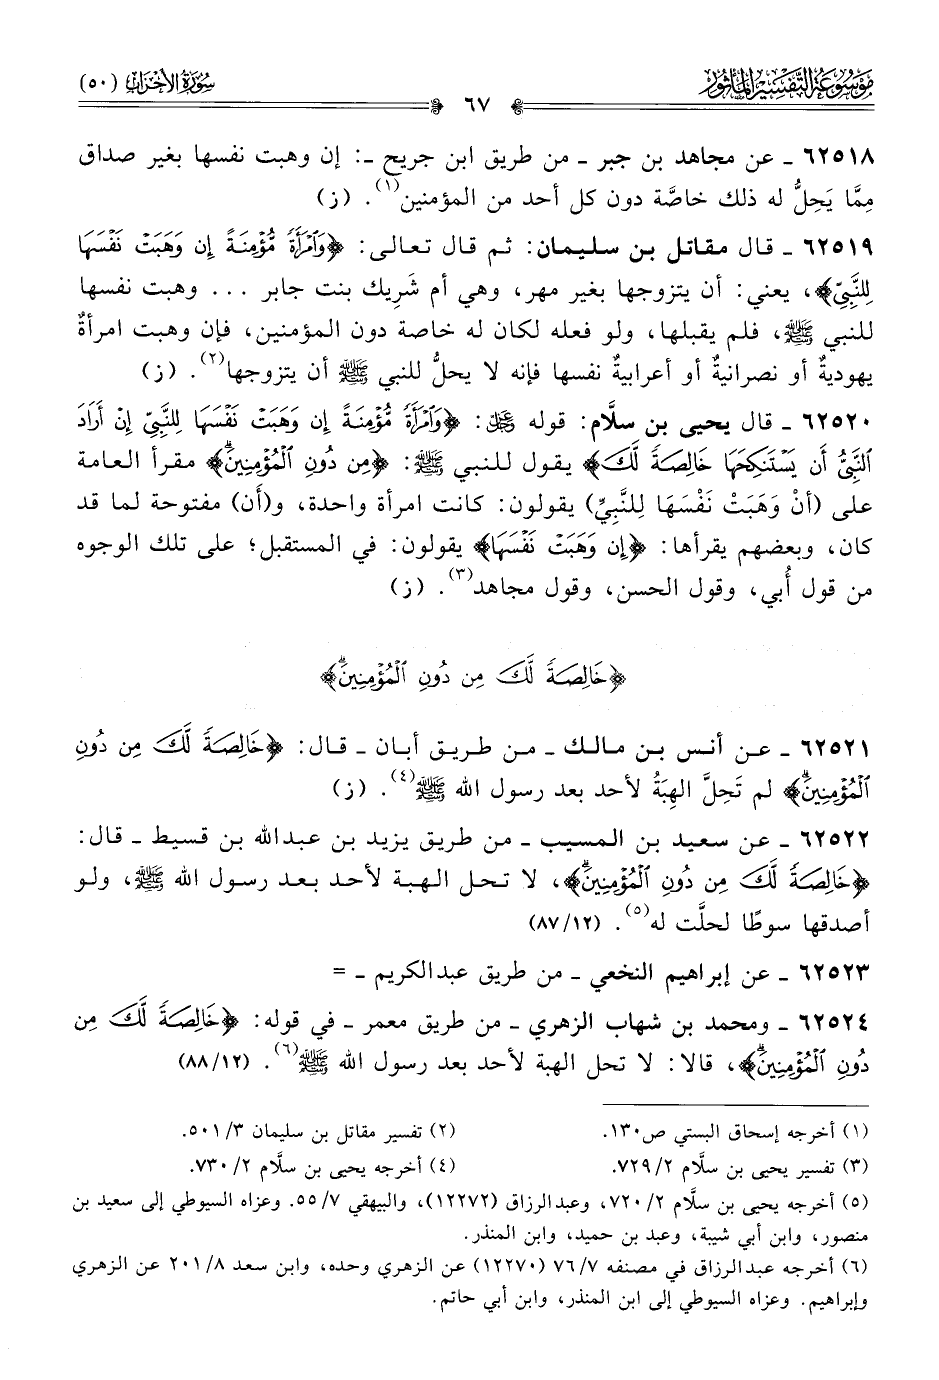 موسوعة التفسير المأثور
سورة الأحزاب (٥٠)
٦٧
٦٢٥١٨ ـ عن مجاهد بن جبر ـ من طريق ابن جريج ـ: إن وهبت نفسها بغير صداق
مِمَّا يَحِلُّ له ذلك خاصَّة دون كل أحد من المؤمنين(١). (ز)
٦٢٥١٩ ـ قال مقاتل بن سليمان: ثم قال تعالى: ﴿وَٱمْرَأَةً مُّؤْمِنَةً إِن وَهَبَتْ نَفْسَهَا
لِلنَّبِيِّ﴾، يعني: أن يتزوجها بغير مهر، وهي أم شَرِيك بنت جابر ... وهبت نفسها
للنبي ﷺ، فلم يقبلها، ولو فعله لكان له خاصة دون المؤمنين، فإن وهبت امرأةٌ
يهوديةٌ أو نصرانيةٌ أو أعرابيةٌ نفسها فإنه لا يحلُّ للنبي ﷺ أن يتزوجها(٢). (ز)
٦٢٥٢٠ ـ قال يحيى بن سلَّام: قوله ﷿: ﴿وَٱمْرَأَةً مُّؤْمِنَةً إِن وَهَبَتْ نَفْسَهَا لِلنَّبِيِّ إِنْ أَرَادَ
ٱلنَّبِيُّ أَن يَسْتَنكِحَهَا خَالِصَةً لَّكَ﴾ يقول للنبي ﷺ: ﴿مِن دُونِ ٱلْمُؤْمِنِينَۗ﴾ مقرأ العامة
على (أنْ وَهَبَتْ نَفْسَهَا لِلنَّبِيِّ) يقولون: كانت امرأة واحدة، و(أَن) مفتوحة لما قد
كان، وبعضهم يقرأها: ﴿إِن وَهَبَتْ نَفْسَهَا﴾ يقولون: في المستقبل؛ على تلك الوجوه
من قول أُبي، وقول الحسن، وقول مجاهد(٣). (ز)
﴿خَالِصَةً لَّكَ مِن دُونِ ٱلْمُؤْمِنِينَۗ﴾
٦٢٥٢١ ـ عن أنس بن مالك ـ من طريق أبان ـ قال: ﴿خَالِصَةً لَّكَ مِن دُونِ
ٱلْمُؤْمِنِينَۗ﴾ لم تَحِلَّ الهِبَةُ لأحد بعد رسول الله ﷺ(٤). (ز)
٦٢٥٢٢ ـ عن سعيد بن المسيب ـ من طريق يزيد بن عبدالله بن قسيط ـ قال:
﴿خَالِصَةً لَّكَ مِن دُونِ ٱلْمُؤْمِنِينَۗ﴾، لا تحل الهبة لأحد بعد رسول الله ﷺ، ولو
أصدقها سوطًا لحلَّت له(٥). (٨٧/١٢)
٦٢٥٢٣ ـ عن إبراهيم النخعي ـ من طريق عبدالكريم ـ =
٦٢٥٢٤ ـ ومحمد بن شهاب الزهري ـ من طريق معمر ـ في قوله: ﴿خَالِصَةً لَّكَ مِن
دُونِ ٱلْمُؤْمِنِينَۗ﴾، قالا: لا تحل الهبة لأحد بعد رسول الله ﷺ(٦). (٨٨/١٢)
(١) أخرجه إسحاق البستي ص١٣٠.
(٢) تفسير مقاتل بن سليمان ٥٠١/٣.
(٣) تفسير يحيى بن سلَّام ٧٢٩/٢.
(٤) أخرجه يحيى بن سلَّام ٧٣٠/٢.
(٥) أخرجه يحيى بن سلَّام ٧٢٠/٢، وعبدالرزاق (١٢٢٧٢)، والبيهقي ٥٥/٧. وعزاه السيوطي إلى سعيد بن
منصور، وابن أبي شيبة، وعبد بن حميد، وابن المنذر.
(٦) أخرجه عبدالرزاق في مصنفه ٧٦/٧ (١٢٢٧٠) عن الزهري وحده، وابن سعد ٢٠١/٨ عن الزهري
وإبراهيم. وعزاه السيوطي إلى ابن المنذر، وابن أبي حاتم.